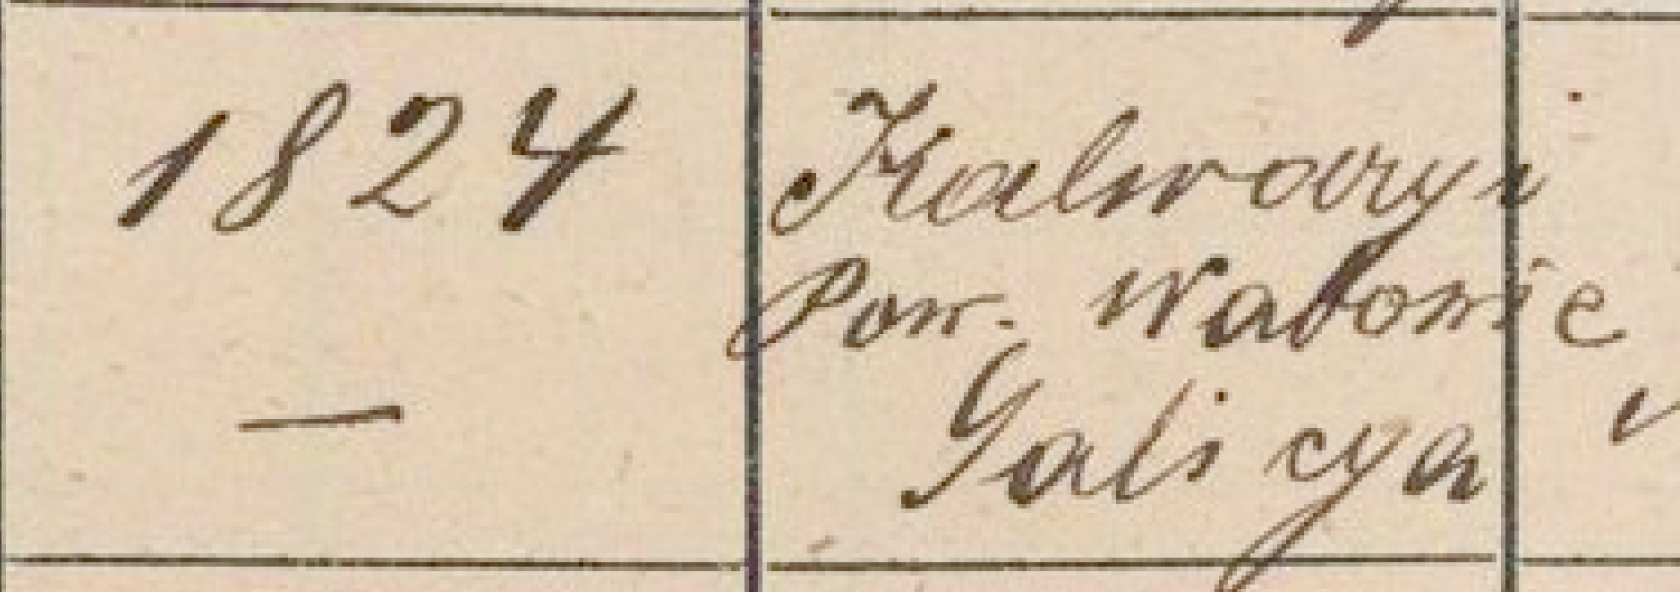 1824
—
Kalwaryi
Pow. Wadowic
Galicya